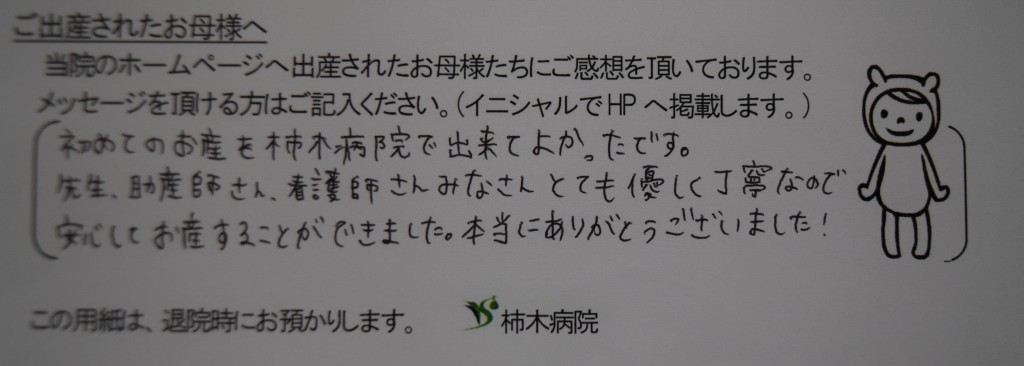 ご出産されたお母様へ
当院のホームページへ出産されたお母様たちにご感想を頂いております。
メッセージを頂ける方はご記入ください。（イニシャルでHPへ掲載します。）
初めてのお産を柿木病院で出来てよかったです。
先生、助産師さん、看護師さんみなさんとても優しく丁寧なので
安心してお産することができました。本当にありがとうございました！
この用紙は、退院時にお預かりします。
柿木病院